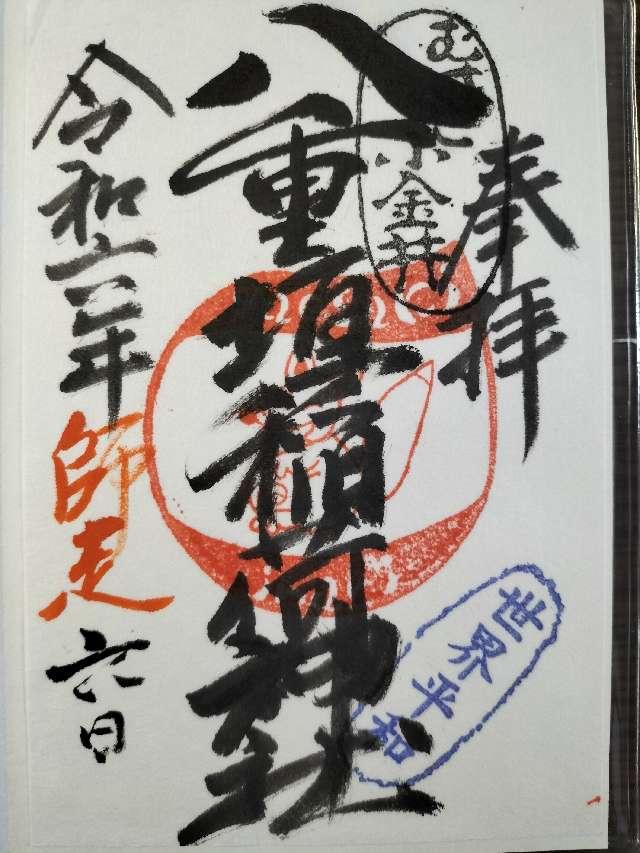 奉拝
むさし小金井
八重垣稲荷神社
世界平和
令和六年
師走
六日